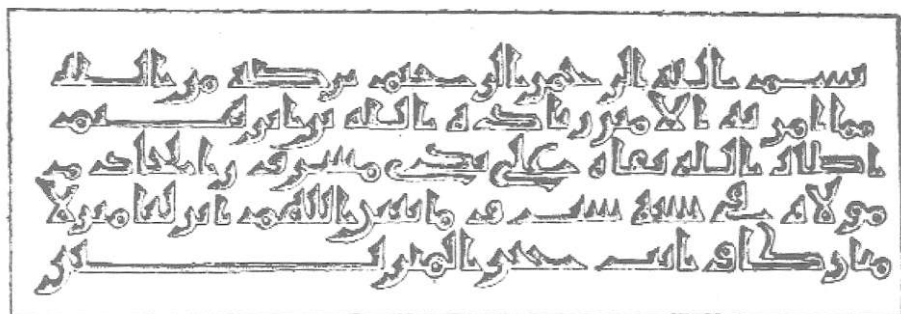 بسم الله الرحمن الرحيم بركة من الله
مما امر به الامير زيادة الله بن ابرهيم
اطال الله بقاه على يدي مسرور الخادم
مولاه في سنة ست و مايتين اللهم انزلنا منزلا
مباركا و انت خير المنزلين